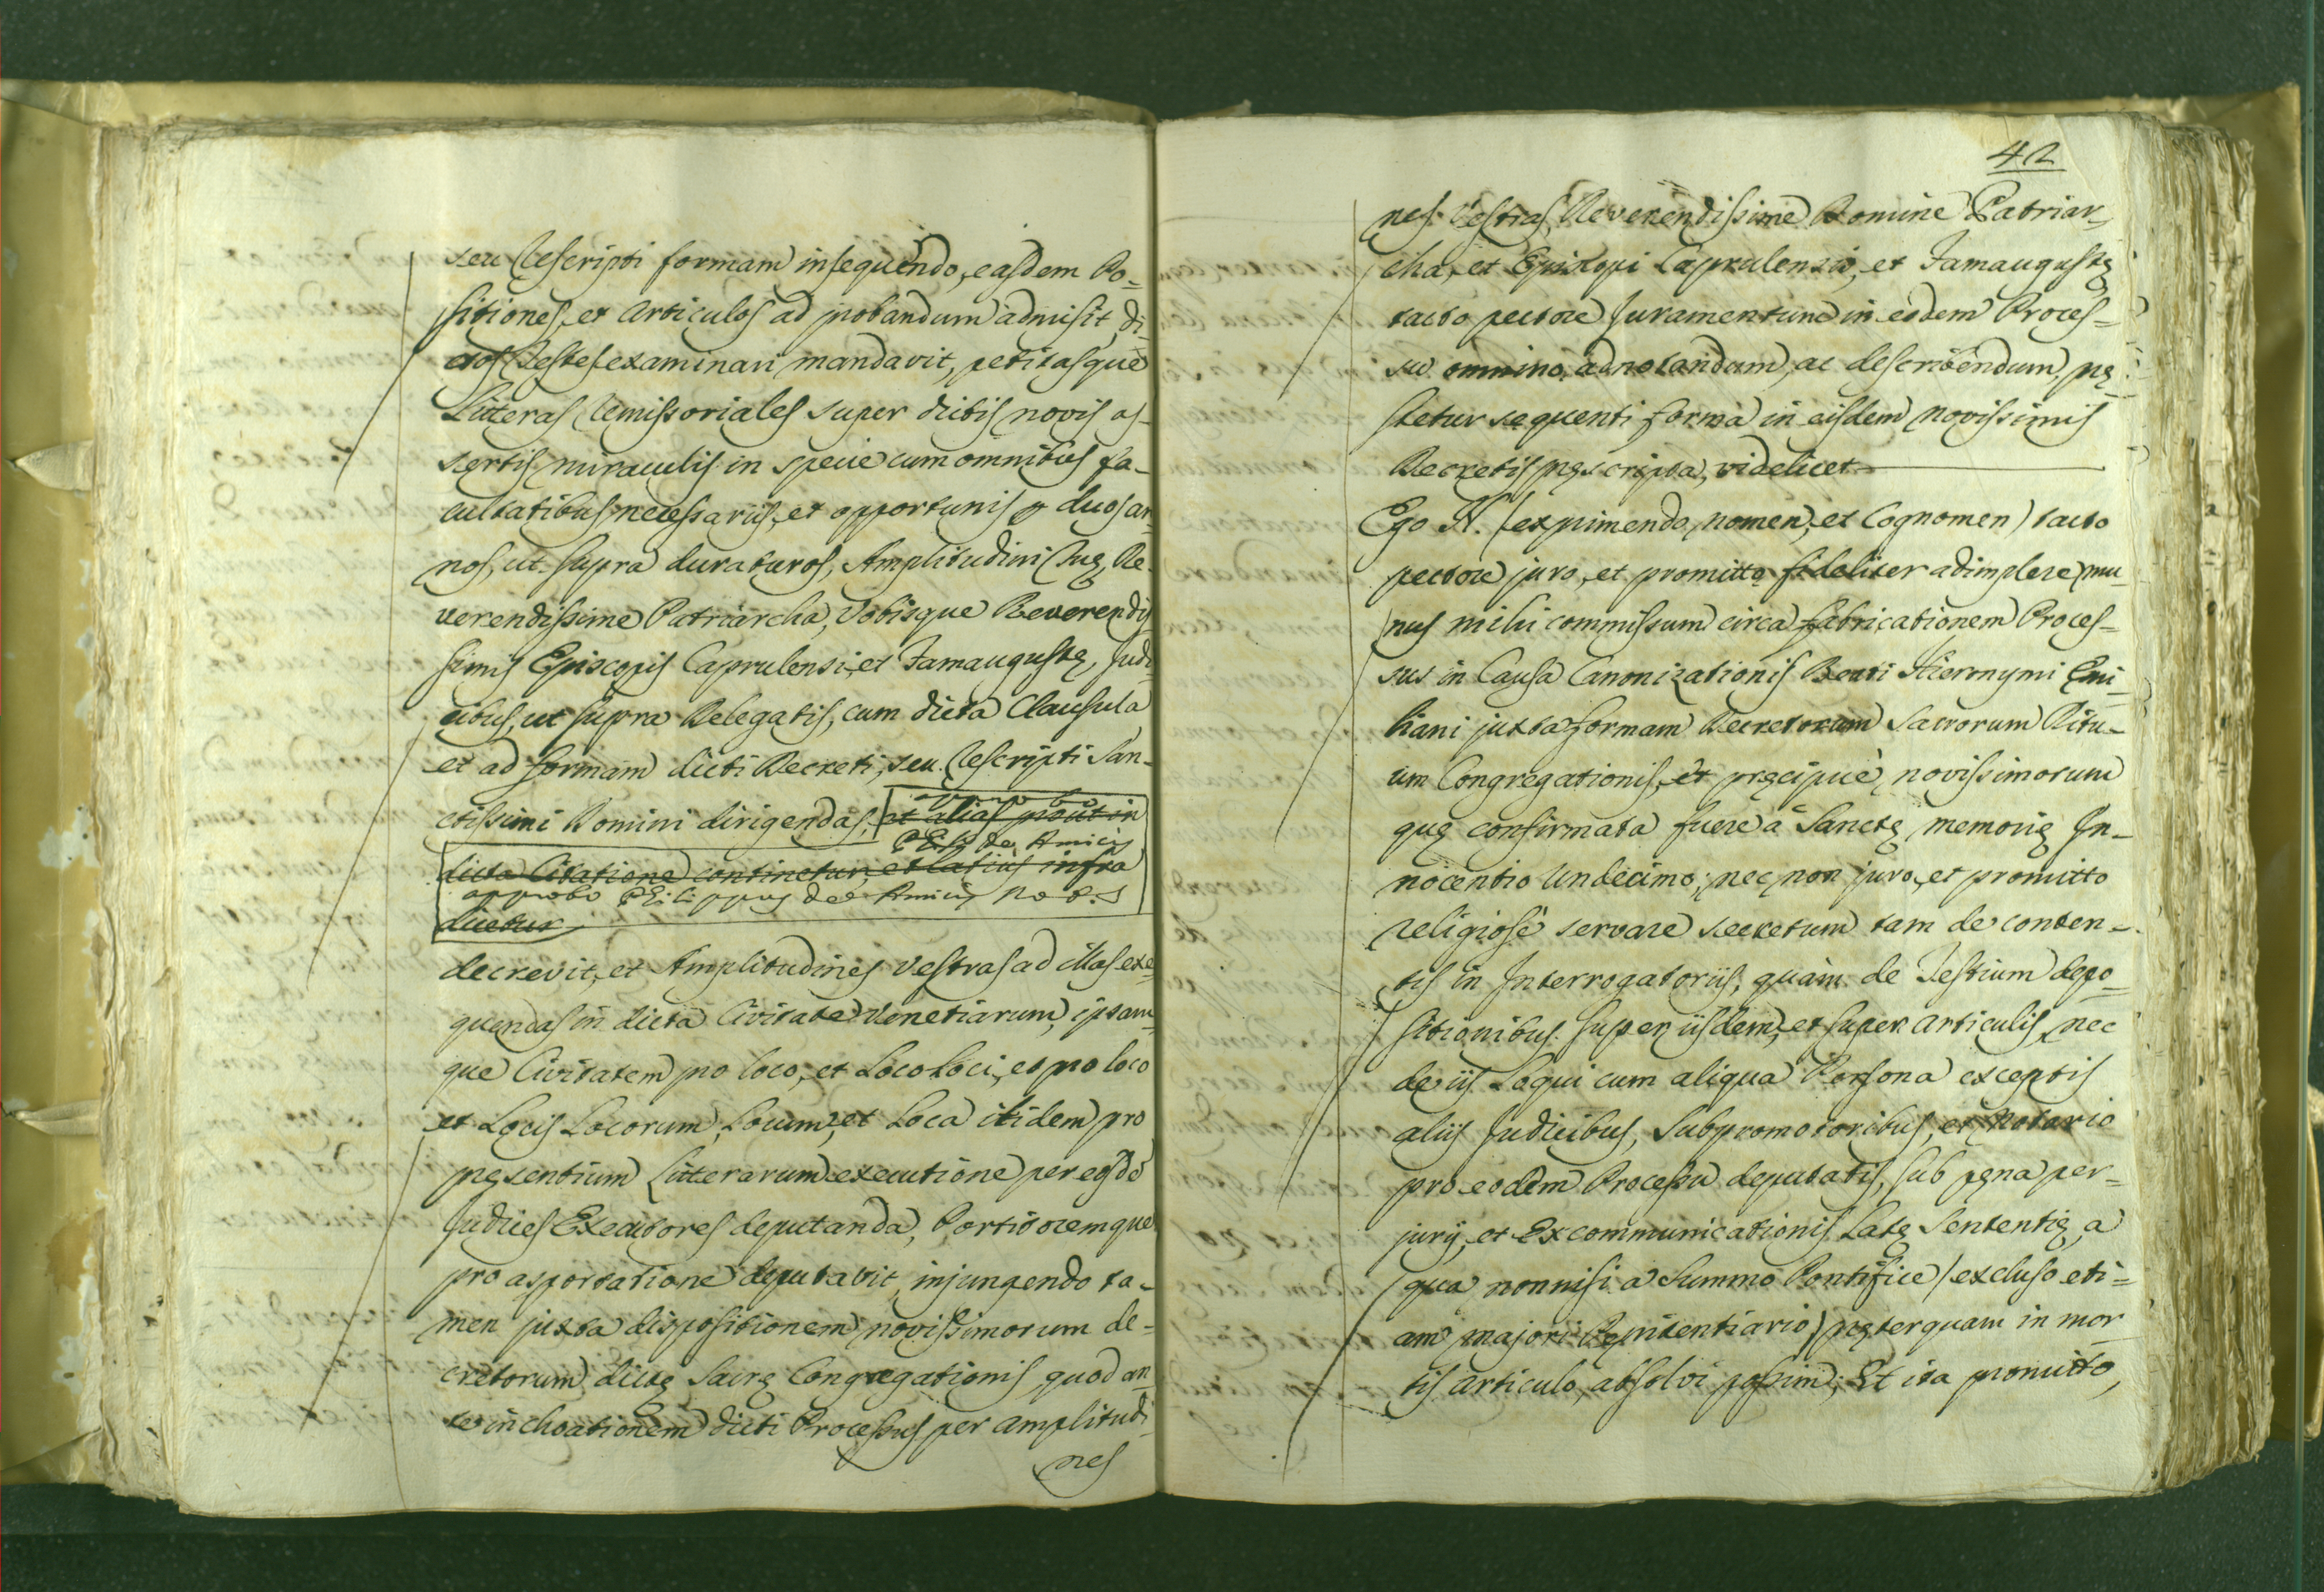 seu Rescripti formam insequendo, easdem Po=
sitiones, et Articulos ad probandum admisit, di
ctos Testes examinari mandavit, petitasque
Litteras Remissoriales super dictis novis as-
sertis miraculis in specie cum omnibus fa-
cultatibus necessariis, et opportunis p duos an
nos, ut supra duraturos, Amplitudini Suę, Re
verendissime Patriarcha, Vobisque Reverendis
simis Episcopis Caprulensi, et Famaugustę, Judi
cibus, ut supra Delegatis, cum dicta Clausula
et ad formam dicti Decreti, seu Rescripti San-
ctissimi Domini dirigendas, et alias prout in
approbo
Ph: de Amicis
dicta Citatione continetur, et latius infra
approbo Philippus de Amicis Not.s
dicetur
decrevit, et Amplitudines Vestras ad illas exe
quendas in dicta Civitate Venetiarum, ipsam-
que Civitatem pro loco, et Loco Loci, et pro loco
et Locis Locorum, Locum, et Loca itidem pro
pręsentium Litterarum executione per eosdē
Judices Executores deputanda, Portitoremque
pro asportatione deputavit, injungendo ta-
men juxta dispositionem novissimorum de-
cretorum dictę Sacrę Congregationis, quod an
te inchoationem dicti Processus per amplitudi
nes
42
nes Vestras, Reverendissime Domine Patriar
cha, et Episcopi Caprulensis, et Famaugustę
tacto pectore Juramentum in eodem Proces-
su omnino adnotandum, ac describendum, prę
stetur sequenti forma in eisdem novissimis
Decretis pręscripta, videlicet
Ego N. (exprimendo nomen, et Cognomen) tacto
pectore juro, et promitto fideliter adimplere mu
nus mihi commissum circa fabricationem Proces-
sus in Causa Canonizationis Beati Hieronymi Emi
liani juxta formam Decretorum Sacrorum Ritu-
um Congregationis, et pręcipuè novissimorum
quę confirmata fuere à Sanctę memorię In-
nocentio Undecimo; nec non juro, et promitto
religiosè servare secretum tam de conten-
tis in Interrogatoriis, quàm de Testium depo
sitionibus super iisdem, et super articulis, nec
de iis Loqui cum aliqua Persona exceptis
aliis Judicibus, Subpromotoribus, et Notario
pro eodem Processu deputatis, sub pęna per-
jurij, et Excommunicationis Latę Sententię, a
qua nonnisi a Summo Pontifice (excluso eti=
am majori Pęnitentiario) pręterquam in mor
tis articulo, absolvi possim; Et ita promitto,